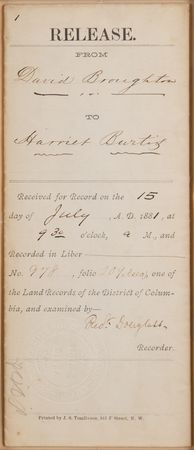 1
RELEASE.
FROM
David Broughton
TO
Harriet Burtis
Received for Record on the 15
day of July, A. D. 1881, at
9 30 o'clock, a M., and
Recorded in Liber
No. 978, folio et seq, one of
the Land Records of the District of Colum-
bia, and examined by—
Fred. Douglass
Recorder.
Printed by J. S. Tomlinson, F Street, N. W.